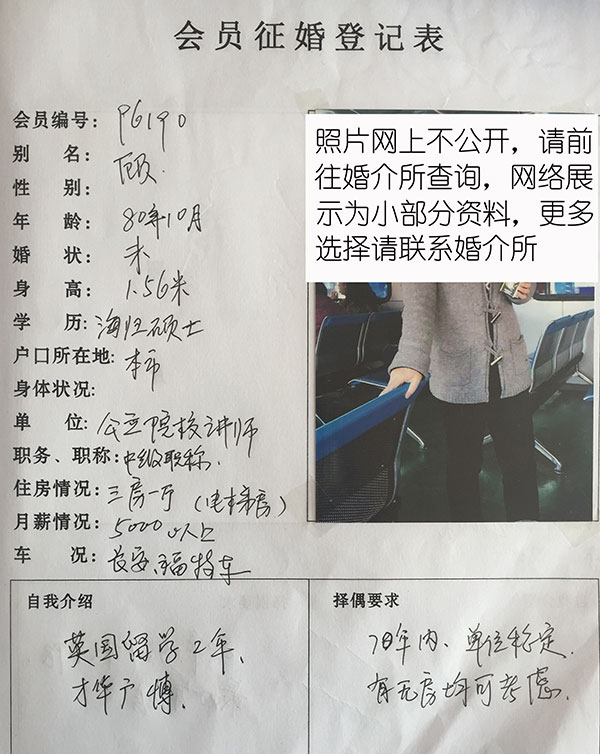 会员征婚登记表
会员编号: P6190
别 名: 顾
性 别:
年 龄: 80年10月
婚 状: 未
身 高: 1.56米
学 历: 海归硕士
户口所在地: 本市
身体状况:
单 位: 公立院校讲师
职务、职称: 中级职称.
住房情况: 三房一厅 (电梯房)
月薪情况: 5000以上
车 况: 长安福特车
照片网上不公开，请前
往婚介所查询，网络展
示为小部分资料，更多
选择请联系婚介所
自我介绍
英国留学2年、
才华广博.
择偶要求
70年内、单位稳定.
有无房均可考虑.